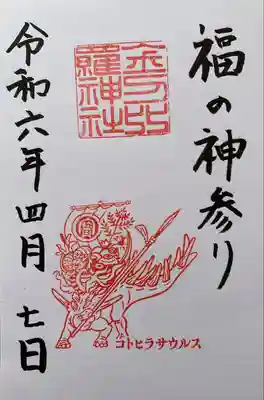 福の神参り
金刀比
羅神社
コトヒラサウルス
令和六年四月七日